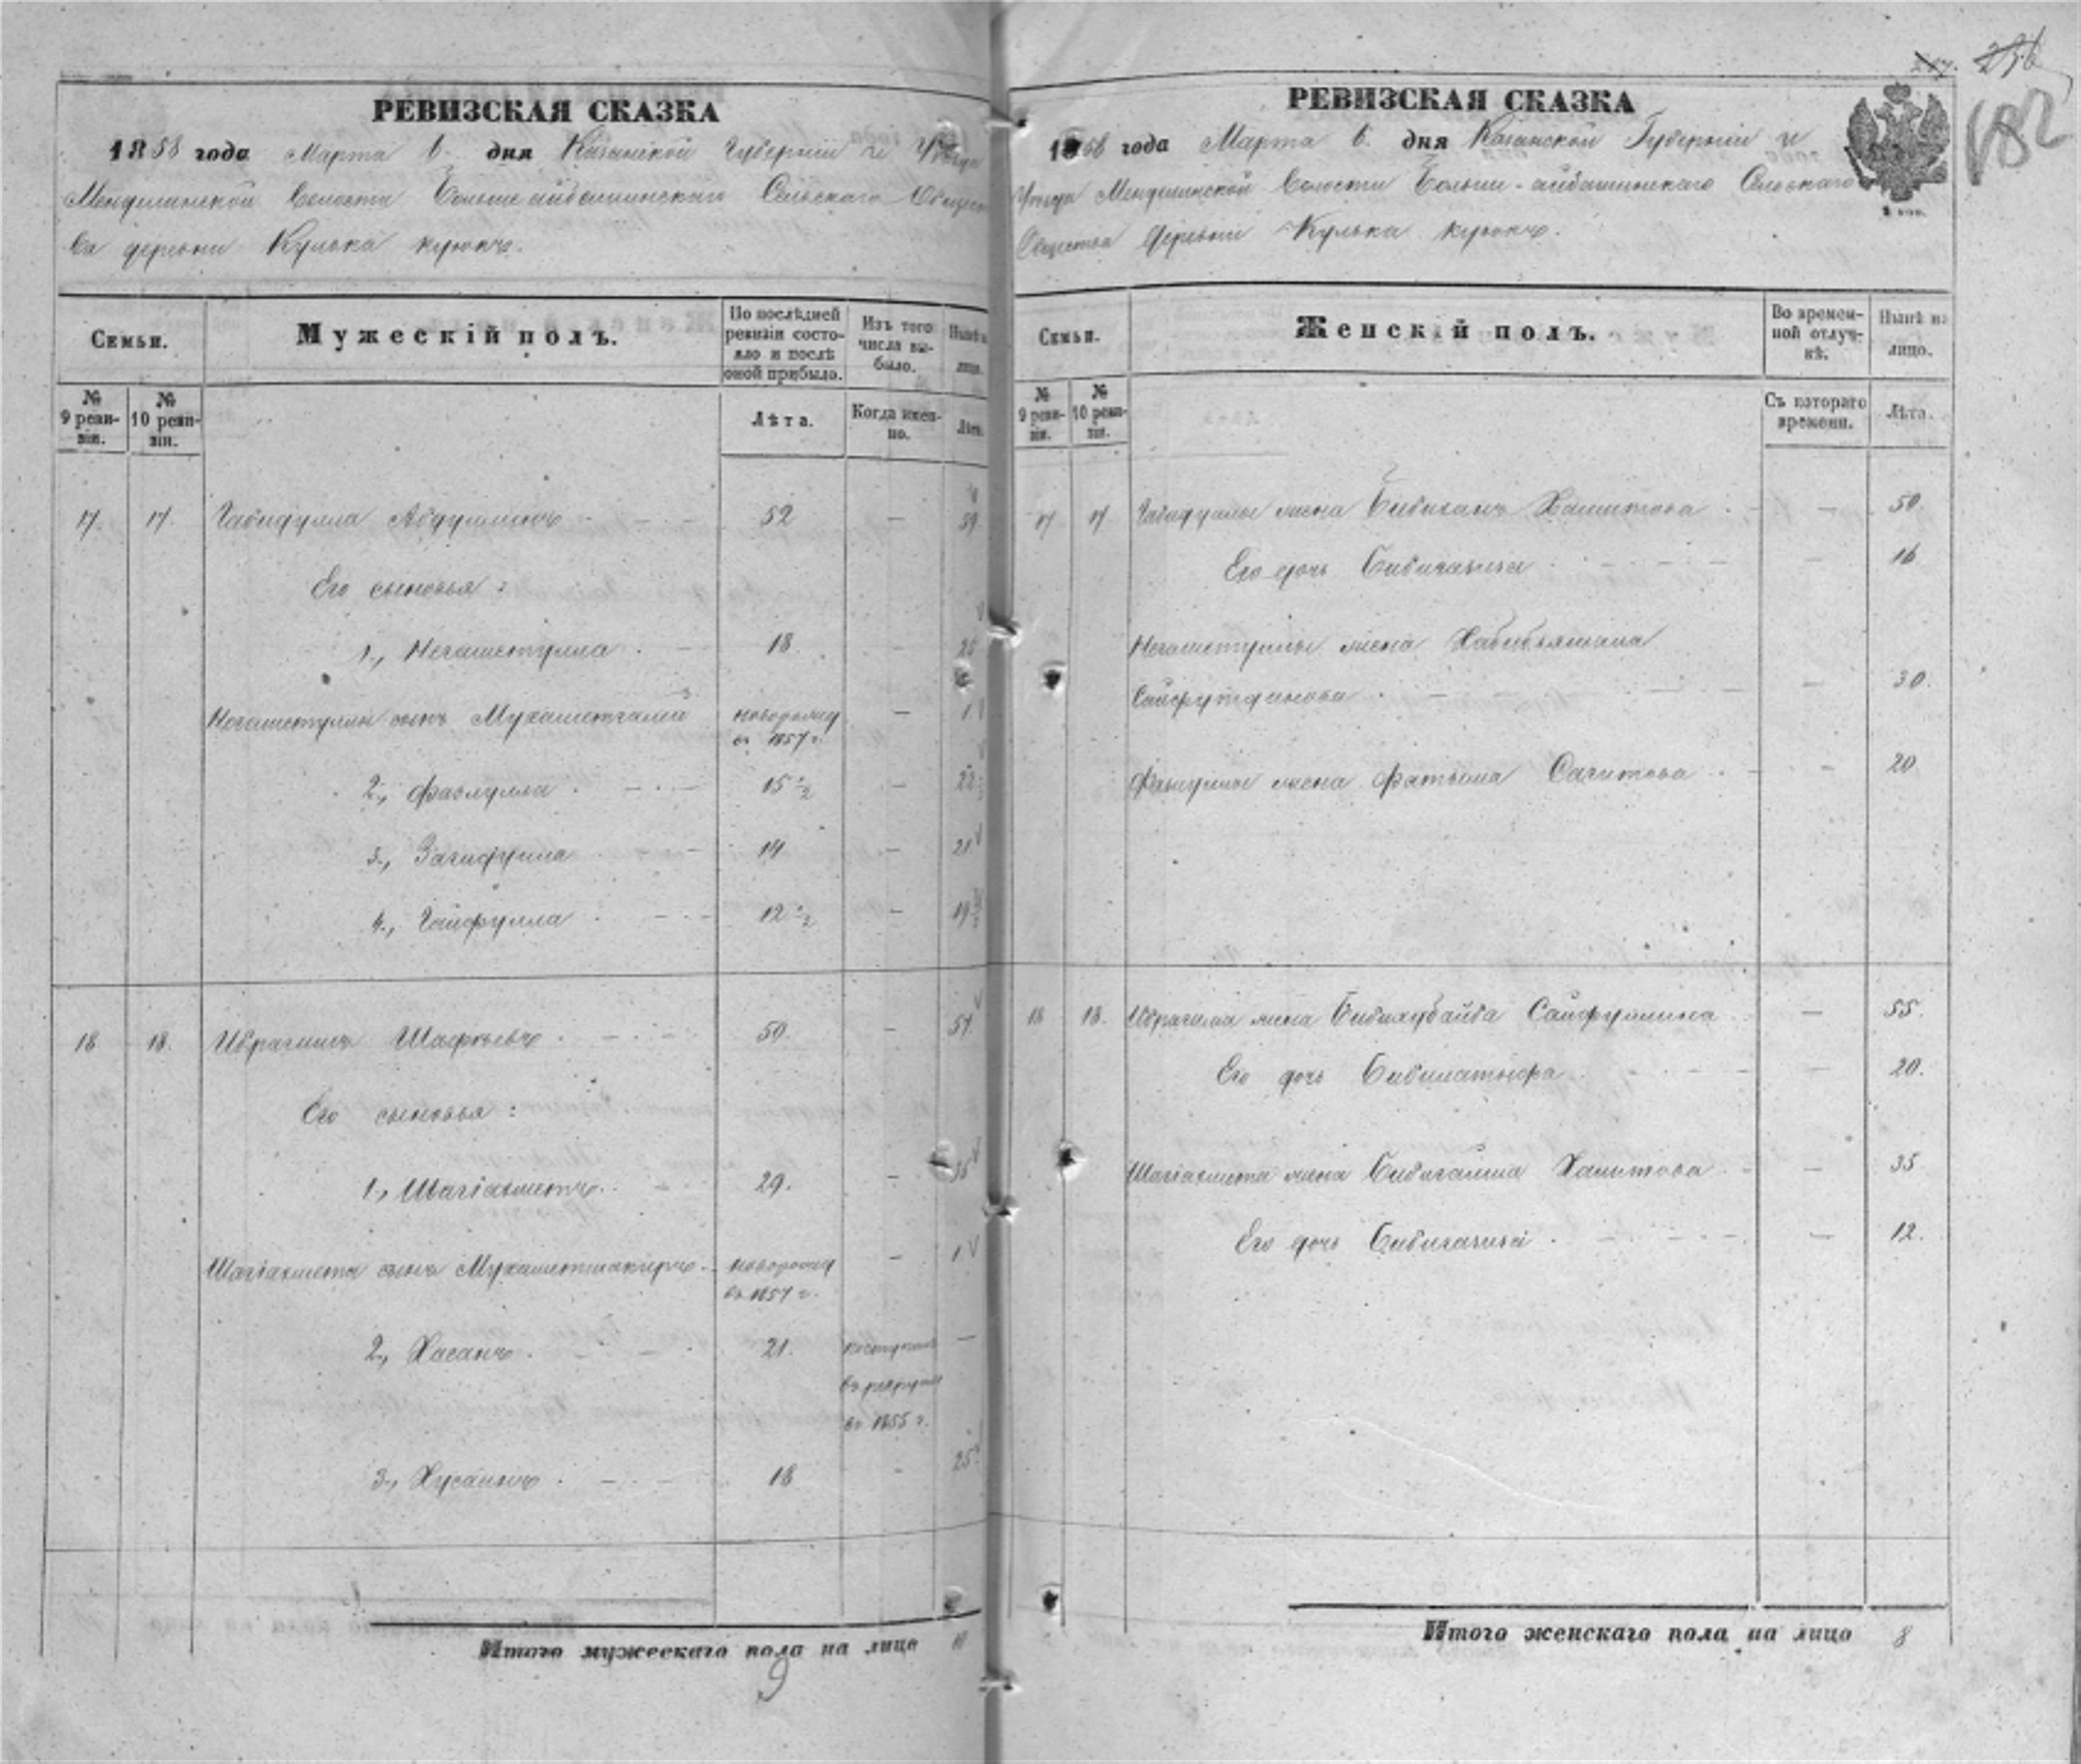 РЕВИЗСКАЯ СКАЗКА
1858 года Марта 6. дня Казанской Губернии и Уезда
Менделинской Волости Больше айбашинскаго Сельскаго Общест
ва деревни Кулька куюкъ.
Семьи.
Мужескій полъ.
По послѣдней ревизіи состояло и послѣ оной прибыло.
Изъ того числа выбыло.
Нынѣ на лицо.
№ 9 ревизіи.
№ 10 ревизіи.
Лѣта.
Когда именно.
Лѣта.
17. 17. Габидулла Абдуллинъ 52 — 59
Его сыновья:
1., Негаметулла 18. — 25
Негаметуллы сынъ Мухаметгалій новорожд — 1
въ 1857 г.
2., Фазлулла 15 ½ — 22 ½
3., Загидулла 14 — 21
4., Гайфулла 12 ½ — 19 ½
18 18. Ибрагимъ Шафѣевъ 50. — 57
Его сыновья:
1., Шагіахметъ 29. — 36
Шагіахмета сынъ Мухаметшакиръ новорожд — 1
въ 1857 г.
2., Хасанъ 21. поступилъ —
въ рекруты
въ 1855 г.
3., Хусаинъ 18 - 25
Итого мужескаго пола на лицо 10
9
237. 236
182
РЕВИЗСКАЯ СКАЗКА
1858 года Марта 6. дня Казанской Губерніи и
Уезда Менделинской Волости Больше-айбашинскаго Сельскаго
Общества деревни Кулька куюкъ.
Семьи.
Женскій полъ.
Во временной отлучкѣ.
Нынѣ на лицо.
№ 9 ревизіи.
№ 10 ревизіи.
Съ котораго времени.
Лѣта.
17 17 Габидуллы жена Бибиханъ Хамитова — 50.
Его дочь Бибигазиза — 16
Негаметуллы жена Хабибзямала
Сайфутдинова — 30.
Фазлуллы жена Фатыма Сагитова — 20
18 18. Ибрагима жена Бибихубайба Сайфуллина — 55.
Его дочь — 20.
Шагіахмета жена Бибигайша Хамитова — 35
Его дочь Бибигазиза — 12.
Итого женскаго пола на лицо 8